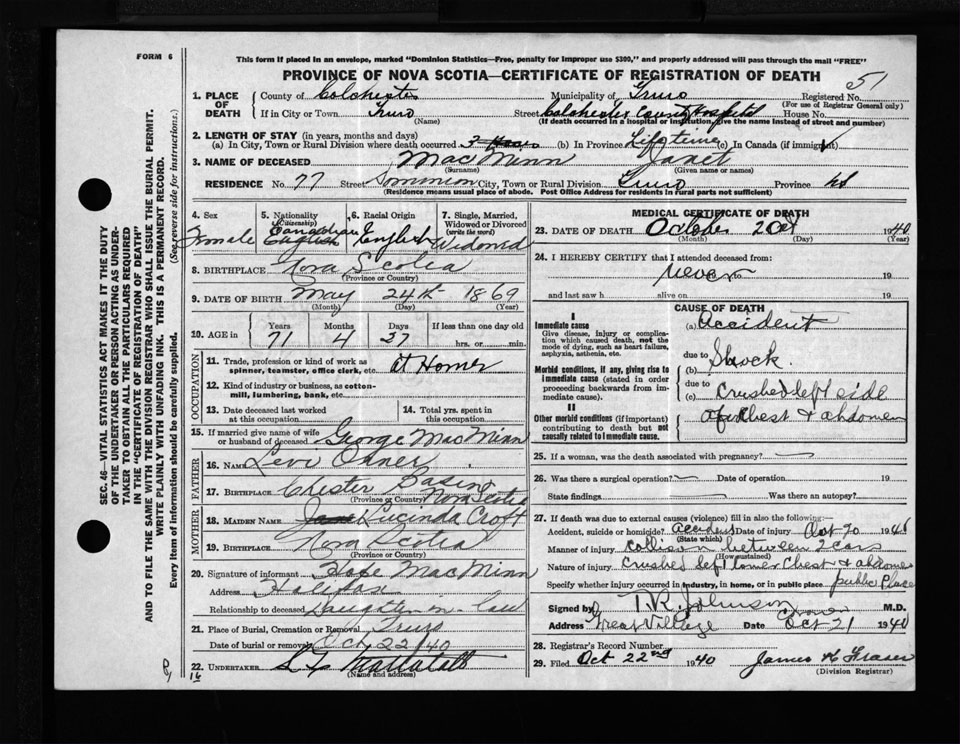 FORM 6
This form if placed in an envelope, marked "Dominion Statistics—Free, penalty for improper use $300," and properly addressed will pass through the mail "FREE"
PROVINCE OF NOVA SCOTIA—CERTIFICATE OF REGISTRATION OF DEATH
51
1. PLACE OF DEATH County of Colchester Municipality of Truro Registered No.
(For use of Registrar General only)
If in City or Town Truro Street Colchester County Hospital House No.
(Name) (If death occurred in a hospital or institution, give the name instead of street and number)
2. LENGTH OF STAY (in years, months and days)
(a) In City, Town or Rural Division where death occurred (b) In Province Lifetime (c) In Canada (if immigrant)
3. NAME OF DECEASED MacMinn Janet
(Surname) (Given name or names)
RESIDENCE No. 77 Street Dominion City, Town or Rural Division Truro Province NS
(Residence means usual place of abode. Post Office Address for residents in rural parts not sufficient)
SEC. 46—VITAL STATISTICS ACT MAKES IT THE DUTY
OF THE UNDERTAKER OR PERSON ACTING AS UNDER-
TAKER TO OBTAIN ALL THE PARTICULARS REQUIRED
IN THE "CERTIFICATE OF REGISTRATION OF DEATH"
AND TO FILE THE SAME WITH THE DIVISION REGISTRAR WHO SHALL ISSUE THE BURIAL PERMIT.
WRITE PLAINLY WITH UNFADING INK. THIS IS A PERMANENT RECORD.
Every item of information should be carefully supplied. (See reverse side for instructions.)
4. Sex 5. Nationality (Citizenship) 6. Racial Origin 7. Single, Married, Widowed or Divorced (write the word)
Female Canadian English English Widowed
8. BIRTHPLACE Nova Scotia
(Province or Country)
9. DATE OF BIRTH May 24th 1869
(Month) (Day) (Year)
10. AGE in Years Months Days If less than one day old
71 4 27 hrs. or min.
OCCUPATION
11. Trade, profession or kind of work as spinner, teamster, office clerk, etc. at Home
12. Kind of industry or business, as cotton-mill, lumbering, bank, etc.
13. Date deceased last worked at this occupation 14. Total yrs. spent in this occupation
15. If married give name of wife or husband of deceased George MacMinn
FATHER
16. Name Levi
17. BIRTHPLACE Chester Basin Nova Scotia
(Province or Country)
MOTHER
18. MAIDEN NAME Jane Lucinda Croft
19. BIRTHPLACE Nova Scotia
(Province or Country)
20. Signature of informant Hope MacMinn
Address Halifax
Relationship to deceased Daughter in law
21. Place of Burial, Cremation or Removal Truro
Date of burial or removal Oct 22/40
22. UNDERTAKER
(Name and address)
16
MEDICAL CERTIFICATE OF DEATH
23. DATE OF DEATH October 20th 1940
(Month) (Day) (Year)
24. I HEREBY CERTIFY that I attended deceased from:
never 19
and last saw h alive on 19
CAUSE OF DEATH
I
Immediate cause
Give disease, injury or complication which caused death, not the mode of dying, such as heart failure, asphyxia, asthenia, etc.
(a) Accident
due to
Morbid conditions, if any, giving rise to immediate cause (stated in order proceeding backwards from immediate cause).
(b) Shock.
due to
(c) Crushed left side
II
Other morbid conditions (if important) contributing to death but not causally related to immediate cause.
of chest & abdomen
25. If a woman, was the death associated with pregnancy?
26. Was there a surgical operation? Date of operation 19
State findings Was there an autopsy?
27. If death was due to external causes (violence) fill in also the following:—
Accident, suicide or homicide? Accident Date of injury Oct 20 1940
(State which)
Manner of injury Collision between 2 cars
(How sustained)
Nature of injury Crushed left lower Chest & abdomen
Specify whether injury occurred in industry, in home, or in public place public Place
Signed by T.R. Johnson Coroner M.D.
Address Great Village Date Oct 21 1940
28. Registrar's Record Number
29. Filed Oct 22nd 1940 James H Fraser
(Division Registrar)